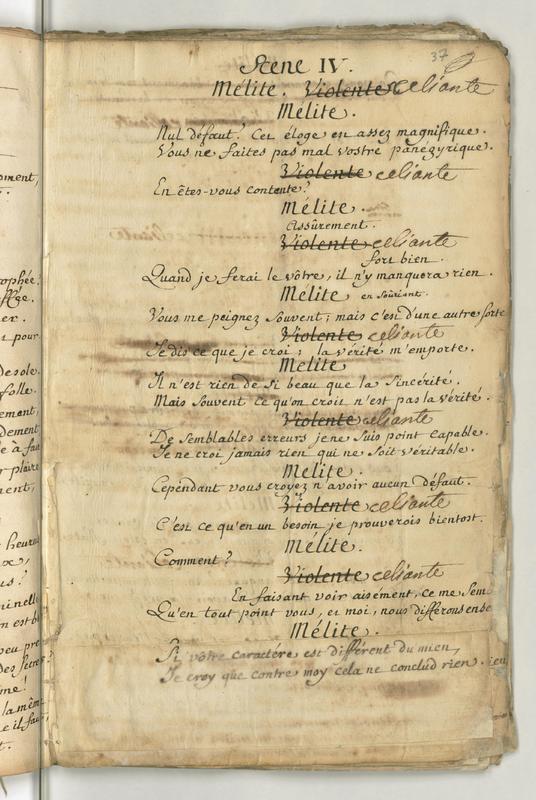 37
Scene IV.
Mélite. Violente celiante
Mélite.
Nul défaut! Cet éloge en assez magnifique.
Vous ne faites pas mal vostre panégyrique.
Violente celiante
En êtes-vous contente?
Mélite.
Assûrement.
Violente celiante
fort bien.
Quand je ferai le vôtre, il n'y manquera rien.
Mélite en souriant.
Vous me peignez souvent; mais c'est d'une autre sorte
Violente celiante
Je dis ce que je croi; la vérité m'emporte.
Mélite
Il n'est rien de si beau que la sincérité.
Mais souvent ce qu'on croit n'est pas la vérité.
Violente celiante
De semblables erreurs je ne suis point capable.
Je ne croi jamais rien qui ne soit véritable.
Mélite.
Cependant vous croyez n'avoir aucun défaut.
Violente celiante
C'est ce qu'en un besoin je prouverois bientost.
Mélite.
Comment?
Violente celiante
En faisant voir aisément, ce me sem
Qu'en tout point vous, et moi, nous différons ense
Mélite.
Si vôtre caractere est différent du mien,
Je croy que contre moy cela ne conclud rien.